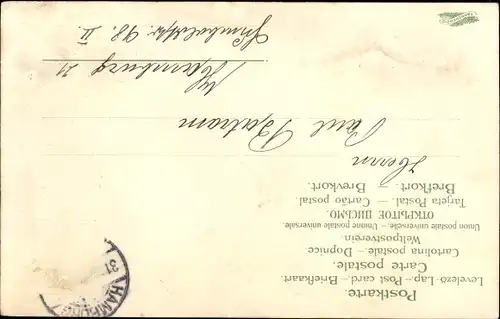 Postkarte.
Levelező-Lap.- Post card - Briefkaart.
Carte postale.
Cartolina postale. - Dopnice
Weltpostverein-
Union postale universelle. - Unione postale universale
ОТКРЫТОЕ ПИСЬМО.
Tarjeta Postal. - Cartão postal.
Brefkort. - Brevkort.
Herrn
Paul Bartram
Hamburg 21
98. II.
HAMBURG
31